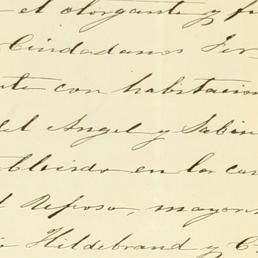 el otorgante y fu
Ciudadanos Fer
te con habitacion
el Angel y Sabin
blecido en la ca
l Reposo, mayor
Hildebrand y C